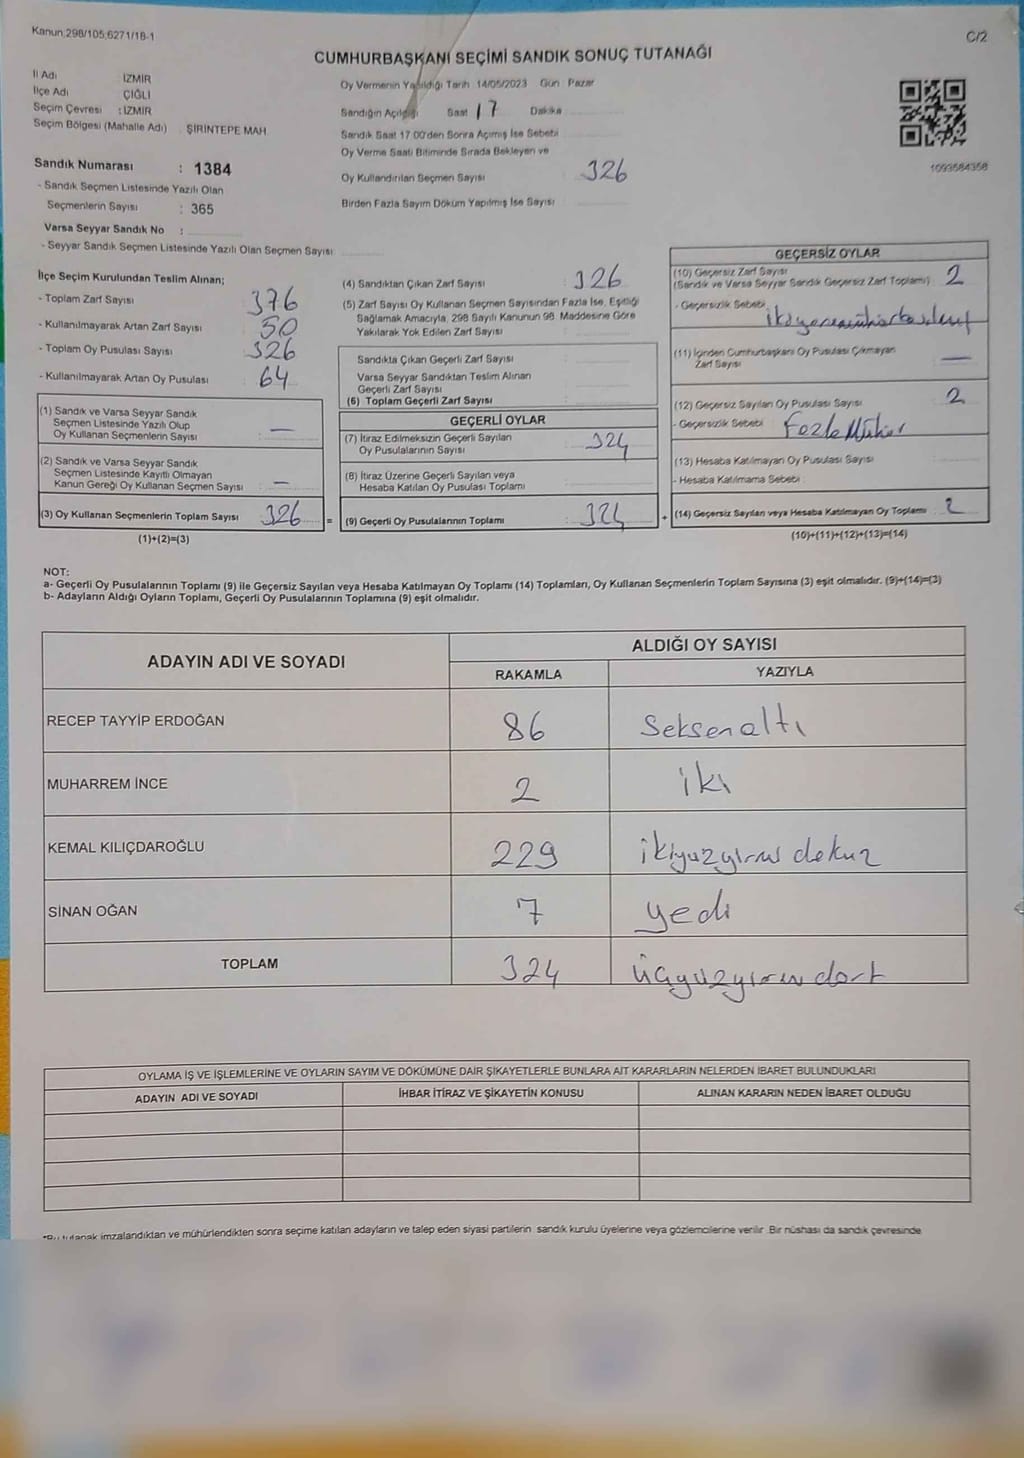 Kanun,298/105,6271/18-1
C/2
CUMHURBAŞKANI SEÇİMİ SANDIK SONUÇ TUTANAĞI
İl Adı : İZMİR
İlçe Adı : ÇİĞLİ
Seçim Çevresi : İZMİR
Seçim Bölgesi (Mahalle Adı) : ŞİRİNTEPE MAH
Sandık Numarası : 1384
- Sandık Seçmen Listesinde Yazılı Olan
Seçmenlerin Sayısı : 365
Varsa Seyyar Sandık No :
- Seyyar Sandık Seçmen Listesinde Yazılı Olan Seçmen Sayısı
Oy Vermenin Yapıldığı Tarih : 14/05/2023 Gün : Pazar
Sandığın Açıldığı Saat 17 Dakika
Sandık Saat 17.00'den Sonra Açılmış İse Sebebi
Oy Verme Saati Bitiminde Sırada Bekleyen ve
Oy Kullandırılan Seçmen Sayısı 326
Birden Fazla Sayım Döküm Yapılmış İse Sayısı :
1093584358
İlçe Seçim Kurulundan Teslim Alınan;
- Toplam Zarf Sayısı : 376
- Kullanılmayarak Artan Zarf Sayısı : 50
- Toplam Oy Pusulası Sayısı : 326
- Kullanılmayarak Artan Oy Pusulası : 64
(1) Sandık ve Varsa Seyyar Sandık
Seçmen Listesinde Yazılı Olup
Oy Kullanan Seçmenlerin Sayısı : —
(2) Sandık ve Varsa Seyyar Sandık
Seçmen Listesinde Kayıtlı Olmayan
Kanun Gereği Oy Kullanan Seçmen Sayısı : —
(3) Oy Kullanan Seçmenlerin Toplam Sayısı : 326 =
(1)+(2)=(3)
(4) Sandıktan Çıkan Zarf Sayısı : 326
(5) Zarf Sayısı Oy Kullanan Seçmen Sayısından Fazla İse, Eşitliği
Sağlamak Amacıyla, 298 Sayılı Kanunun 98. Maddesine Göre
Yakılarak Yok Edilen Zarf Sayısı :
Sandıkta Çıkan Geçerli Zarf Sayısı :
Varsa Seyyar Sandıktan Teslim Alınan
Geçerli Zarf Sayısı :
(6) Toplam Geçerli Zarf Sayısı :
GEÇERLİ OYLAR
(7) İtiraz Edilmeksizin Geçerli Sayılan
Oy Pusulalarının Sayısı : 324
(8) İtiraz Üzerine Geçerli Sayılan veya
Hesaba Katılan Oy Pusulası Toplamı :
(9) Geçerli Oy Pusulalarının Toplamı : 324 +
GEÇERSİZ OYLAR
(10) Geçersiz Zarf Sayısı
(Sandık ve Varsa Seyyar Sandık Geçersiz Zarf Toplamı) : 2
- Geçersizlik Sebebi
(11) İçinden Cumhurbaşkanı Oy Pusulası Çıkmayan
Zarf Sayısı —
(12) Geçersiz Sayılan Oy Pusulası Sayısı : 2
- Geçersizlik Sebebi : Fazla Mühür
(13) Hesaba Katılmayan Oy Pusulası Sayısı :
- Hesaba Katılmama Sebebi :
(14) Geçersiz Sayılan veya Hesaba Katılmayan Oy Toplamı : 2
(10)+(11)+(12)+(13)=(14)
NOT:
a- Geçerli Oy Pusulalarının Toplamı (9) ile Geçersiz Sayılan veya Hesaba Katılmayan Oy Toplamı (14) Toplamları, Oy Kullanan Seçmenlerin Toplam Sayısına (3) eşit olmalıdır. (9)+(14)=(3)
b- Adayların Aldığı Oyların Toplamı, Geçerli Oy Pusulalarının Toplamına (9) eşit olmalıdır.
ADAYIN ADI VE SOYADI
ALDIĞI OY SAYISI
RAKAMLA YAZIYLA
RECEP TAYYİP ERDOĞAN 86 Seksenaltı
MUHARREM İNCE 2 iki
KEMAL KILIÇDAROĞLU 229 ikiyuzyirmi dokuz
SİNAN OĞAN 7 yedi
TOPLAM 324 üçyuzyirmi dört
OYLAMA İŞ VE İŞLEMLERİNE VE OYLARIN SAYIM VE DÖKÜMÜNE DAİR ŞİKAYETLERLE BUNLARA AİT KARARLARIN NELERDEN İBARET BULUNDUKLARI
ADAYIN ADI VE SOYADI İHBAR İTİRAZ VE ŞİKAYETİN KONUSU ALINAN KARARIN NEDEN İBARET OLDUĞU
*Bu tutanak imzalandıktan ve mühürlendikten sonra seçime katılan adayların ve talep eden siyasi partilerin sandık kurulu üyelerine veya gözlemcilerine verilir. Bir nüshası da sandık çevresinde